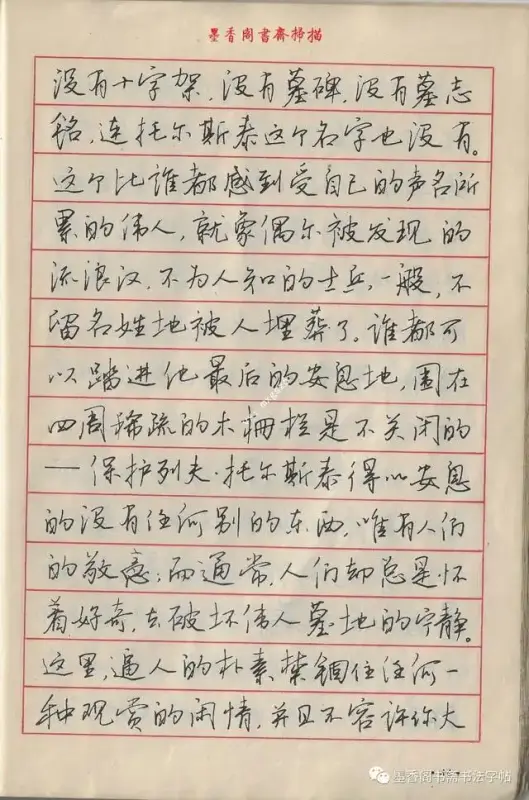 墨香阁書齋掃描
没有十字架，没有墓碑，没有墓志
铭，连托尔斯泰这个名字也没有。
这个比谁都感到受自己的声名所
累的伟人，就象偶尔被发现的
流浪汉，不为人知的士兵，一般，不
留名姓地被人埋葬了。谁都可
以踏进他最后的安息地，围在
四周稀疏的木栅栏是不关闭的
——保护列夫·托尔斯泰得以安息
的没有任何别的东西，唯有人们
的敬意；而通常，人们却总是怀
着好奇，去破坏伟人墓地的宁静。
这里，逼人的朴素禁锢住任何一
种观赏的闲情，并且不容许你大
墨香阁书斋书法字帖